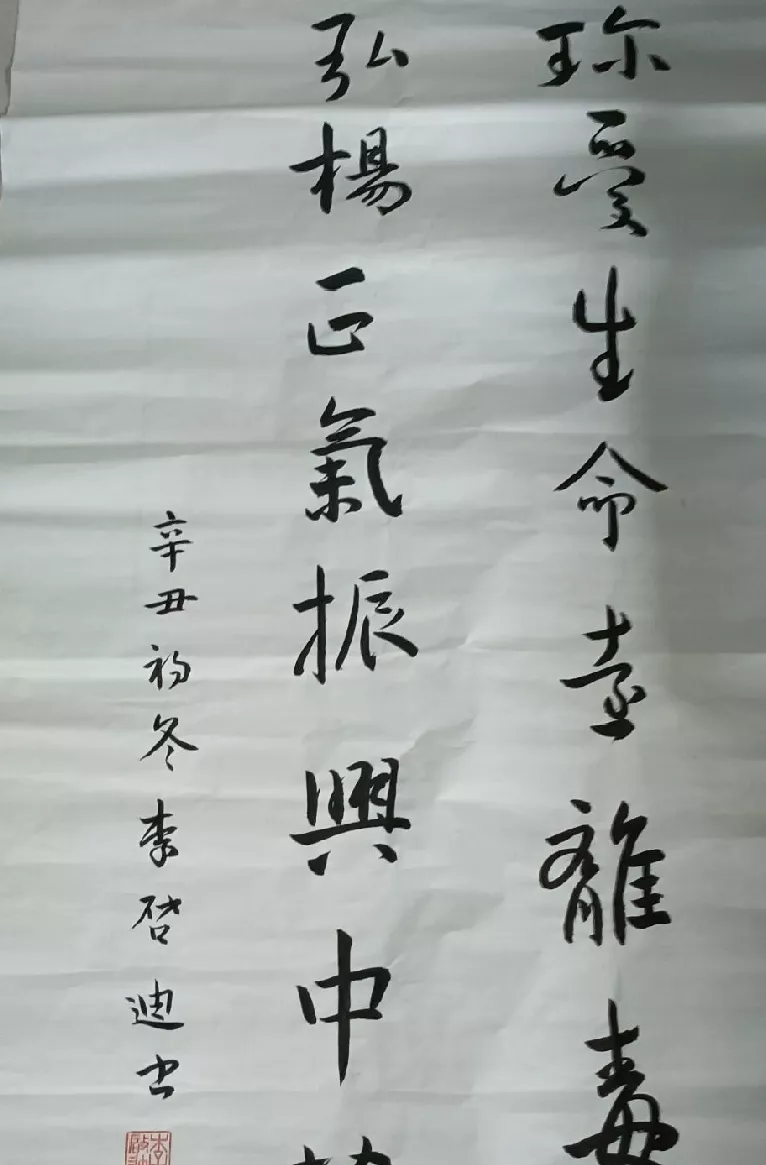 珎愛生命遠離毒
弘楊正氣振興中
辛丑初冬李啓迪书